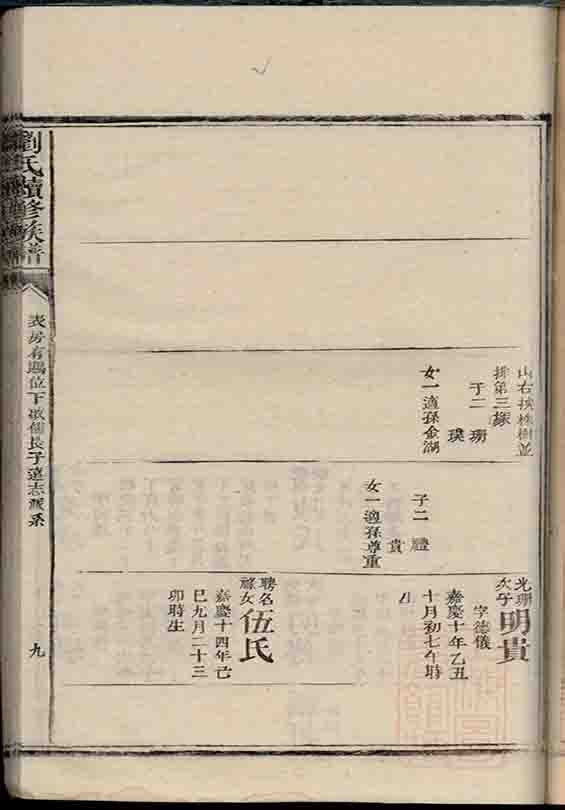 山右挨株樹並
排第三塚
子二 珊
璞
女一適孫金湖
子二 禮
貴
女一適孫尊重
光珊次子
明貴
字德儀
嘉慶十年乙丑
十月初七午時
生
聘名祿女
伍氏
嘉慶十四年己
巳九月二十三
卯時生
劉氏續修族譜
表房有賜位下欽儒長子遠志派系
九